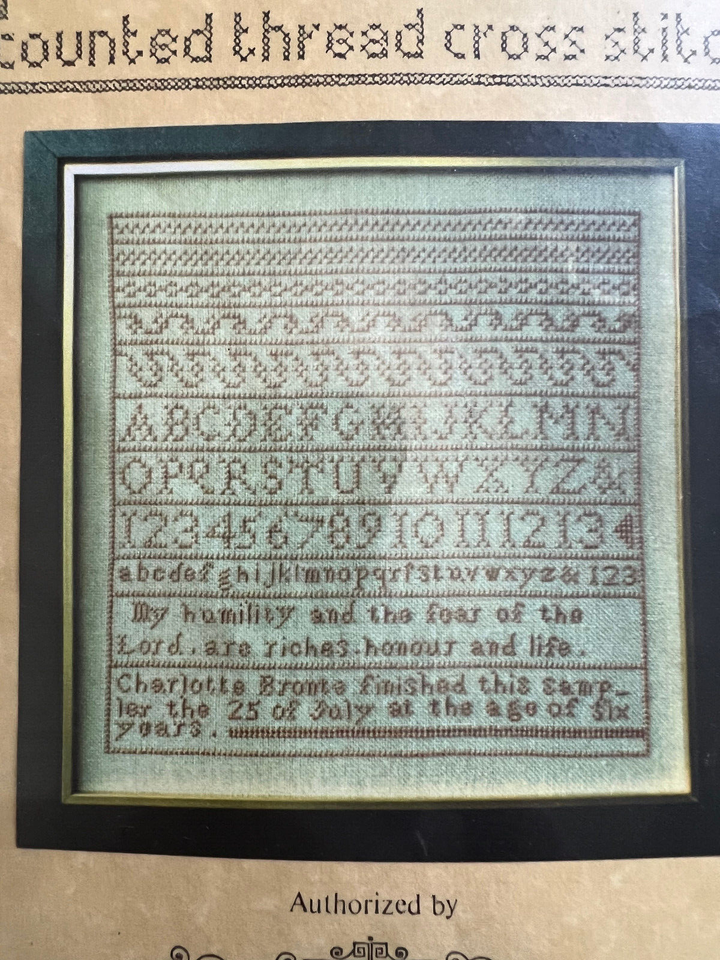 Counted thread cross stitc
ABCDEFGHIJKLMN
OPQRSTUVWXYZ&
12345678910 11 12 13 4
abcdefghijklmnopqrsſstuvwxyz& 123
My humility and the fear of the
Lord, are riches honour and life.
Charlotte Bronte finished this samp-
ler the 25 of July at the age of six
years.
Authorized by